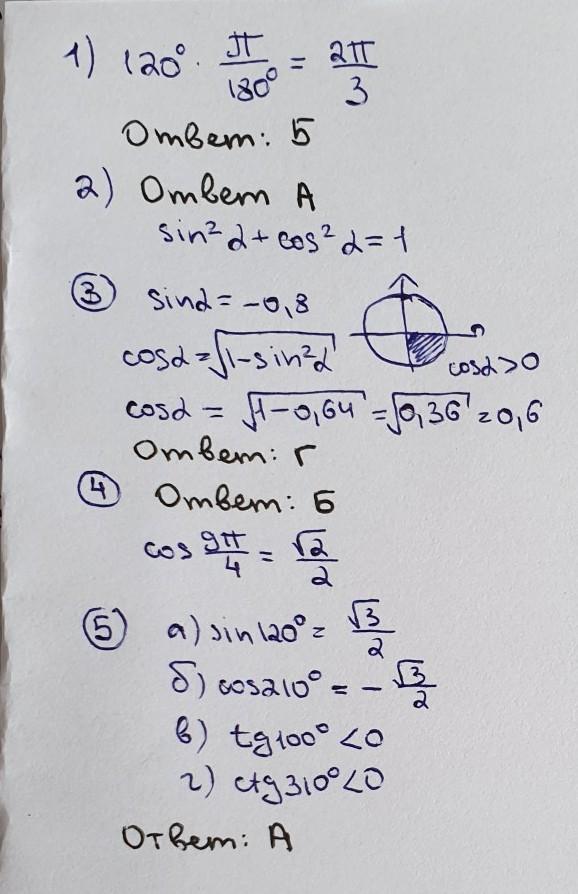 1) 120° · π/180° = 2π/3
Ответ: Б
2) Ответ А
sin²α + cos²α = 1
③ sinα = -0,8
cosα = √(1-sin²α)
cosα > 0
cosα = √(1-0,64) = √(0,36) = 0,6
Ответ: Г
④ Ответ: Б
cos 9π/4 = √2/2
⑤ а) sin120° = √3/2
б) cos210° = -√3/2
в) tg100° < 0
г) ctg310° < 0
Ответ: А